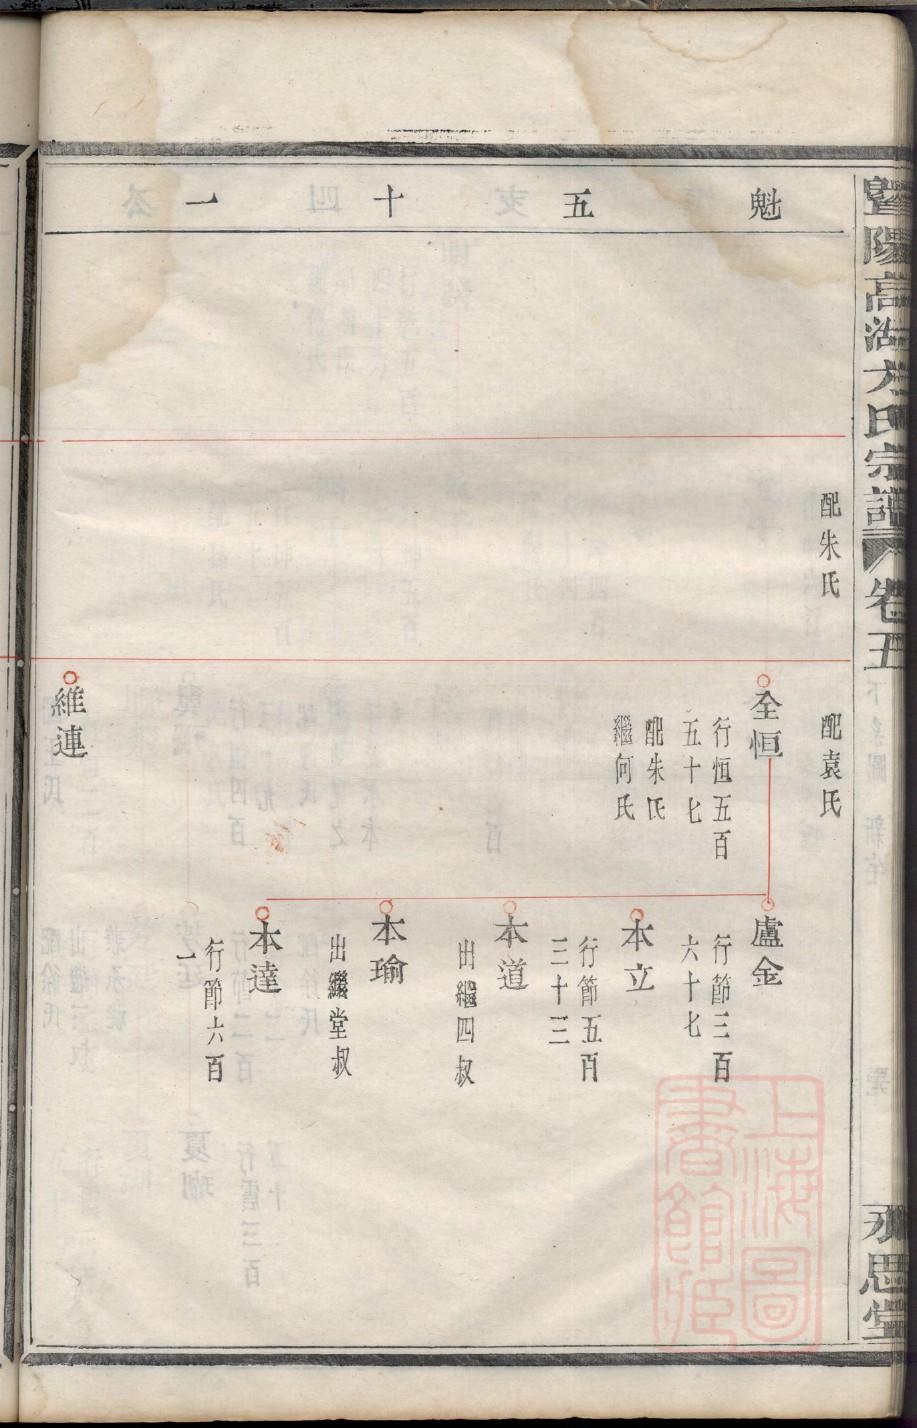 暨陽高湖方氏宗譜 卷五 下系圖 新宅 永思堂
魁 五 十 一
配朱氏
配袁氏
全恒
行恒五百
五十七
配朱氏
繼何氏
盧金
行節三百
六十七
本立
行節五百
三十三
本道
出繼四叔
本瑜
出繼堂叔
本達
行節六百
一
維連
上海圖書館藏